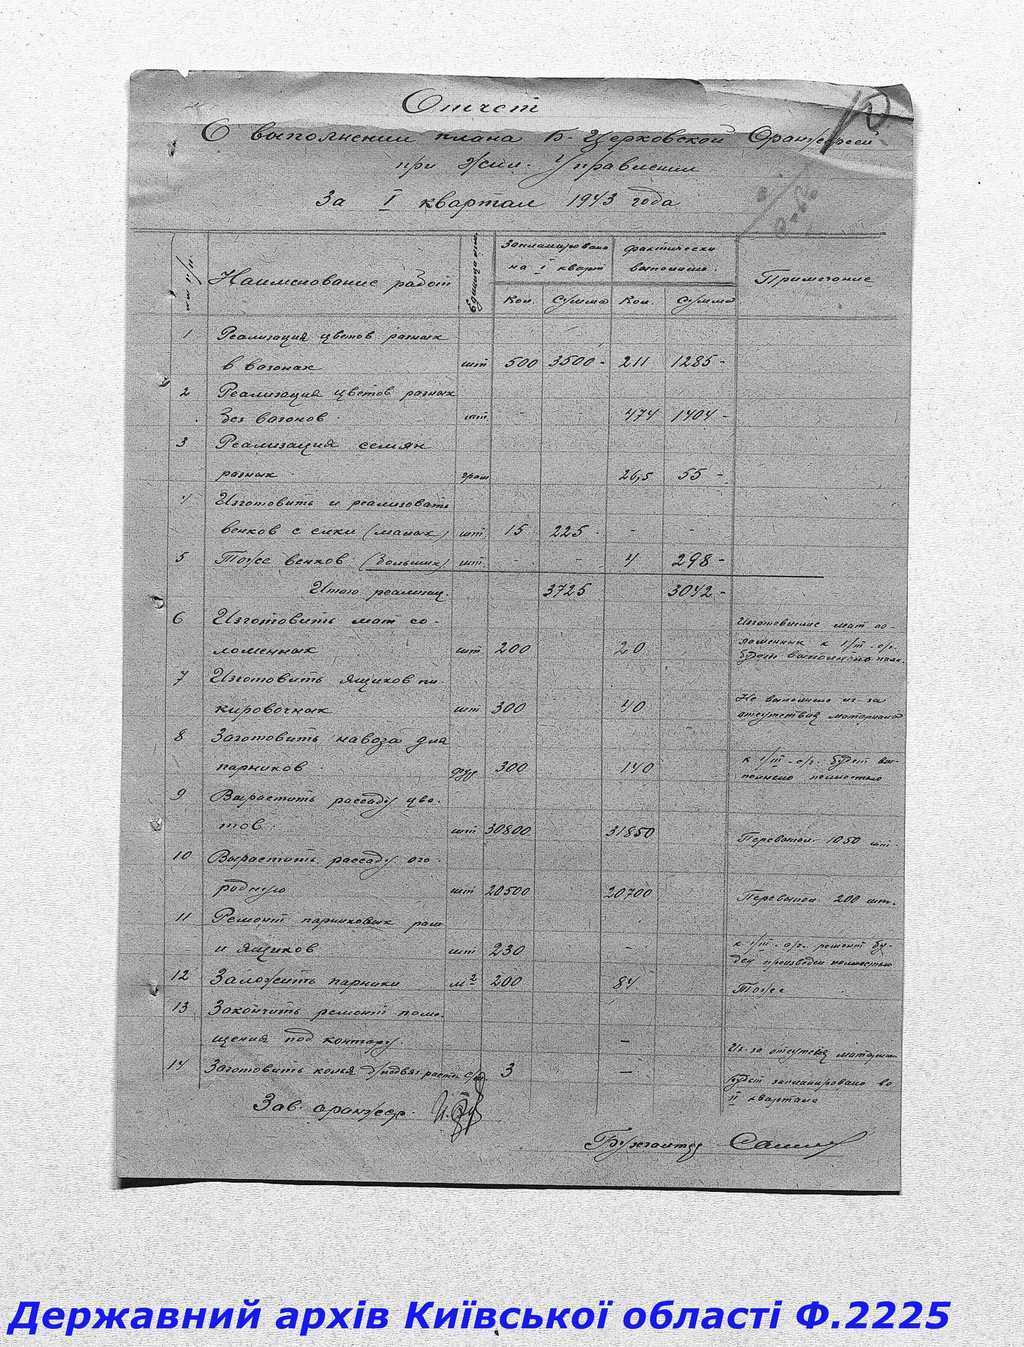 Отчет
О выполнении плана Б-Церковской Оранжереи
при Жил. Управлении
За I квартал 1943 года
Наименование работ
Единица
Запланировано на I кварт
фактически выполнено.
Примечание
Кол. Сумма Кол. Сумма
1 Реализация цветов разных
в вазонах шт 500 3500- 211 1285-
2 Реализация цветов разных
без вазонов шт. - - 474 1404-
3 Реализация семян
разных грам 26,5 55-
4 Изготовить и реализовать
венков с елки (малых) шт 15 225 - -
5 Тоже венков (больших) шт. - - 4 298-
Итого реализац. 3725 3042-
6 Изготовить мат со- Изготовление мат со-
ломенных шт 200 20 ломенных к 1/III-с/г. будет выполнено полн.
7 Изготовить ящиков пи-
кировочных шт 300 40 Не выполнено из-за отсутствия материала
8 Заготовить навоза для
парников 300 140 к 1/III-с/г. будет вы-
полнено полностью
9 Вырастить рассаду цве-
тов. шт 30800 31850 Перевыпол. 1050 шт.
10 Вырастить рассаду ого-
родную шт 20500 20700 Перевыпол. 200 шт.
11 Ремонт парниковых рам
и ящиков шт 230 - к 1/III-с/г. ремонт бу-
дет произведен полностью
12 Заложить парники м² 200 84 Тоже
13 Закончить ремонт поме-
щения под контору. - Из-за отсутств. материала
14 Заготовить колья 3 - Будет запланировано во
II квартале
Зав. оранжер.
Бухгалтер
Державний архів Київської області Ф.2225